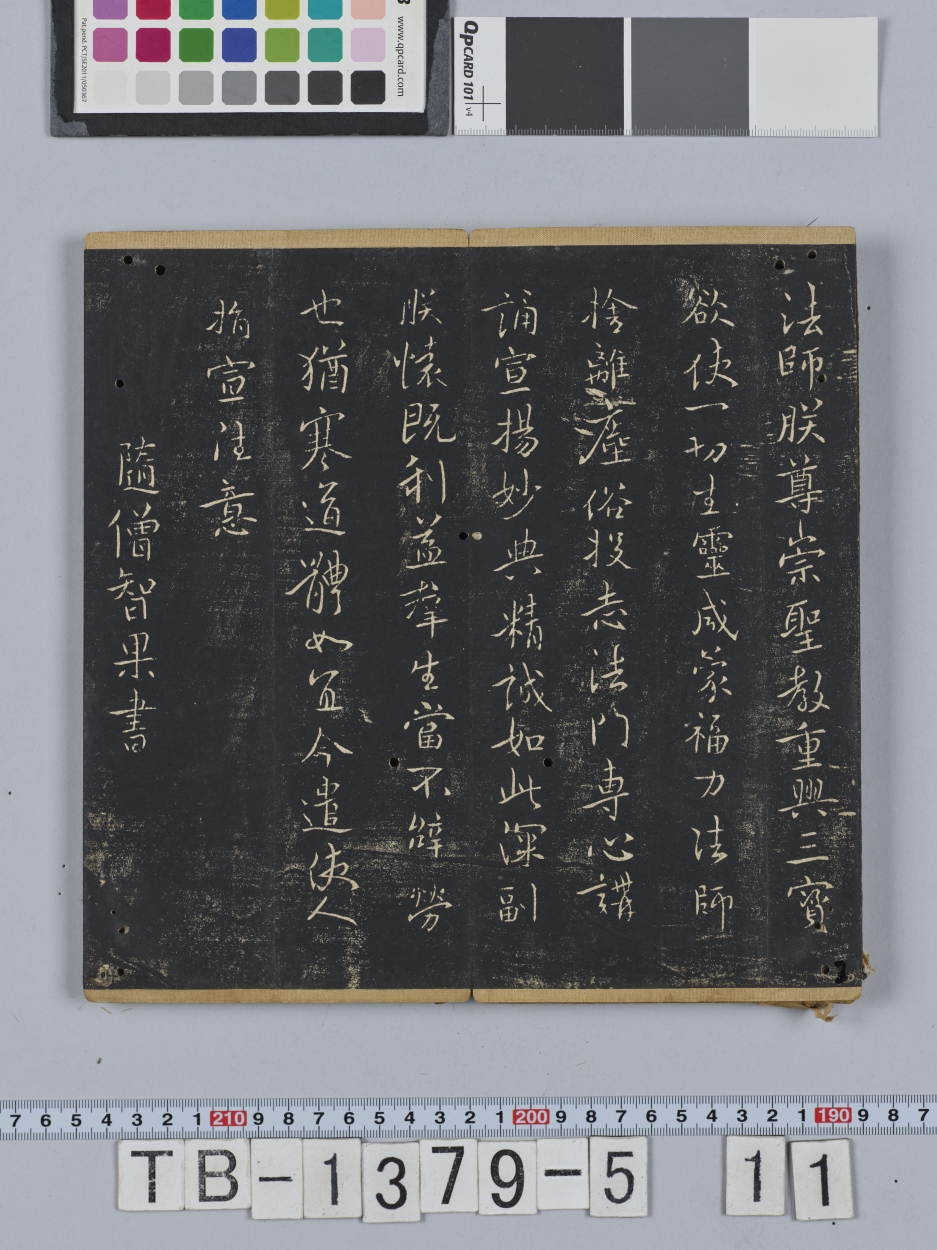 www.qpcard.com
Pat.pend. PCT/SE2011/050367
QPCARD 101 v4
法師朕尊崇聖教重興三寳
欲使一切生靈咸蒙福力法師
捨離塵俗投志法門專心講
誦宣揚妙典精誠如此深副
朕懐既利益羣生當不辭勞
也猶寒道體如宜今遣使人
指宣往意
隨僧智果書
7 6 5 4 3 2 1 210 9 8 7 6 5 4 3 2 1 200 9 8 7 6 5 4 3 2 1 190 9 8 7
TB-1379-5 11